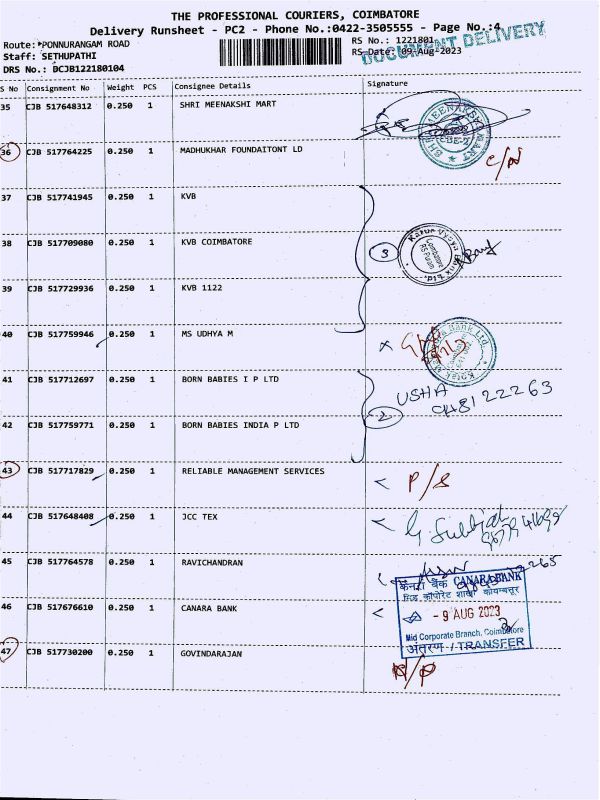 THE PROFESSIONAL COURIERS, COIMBATORE
Delivery Runsheet - PC2 - Phone No.:0422-3505555 - Page No.:4
Route: PONNURANGAM ROAD RS No.: 1221801
DOCUMENT DELIVERY
Staff: SETHUPATHI RS Date: 09-Aug-2023
DRS No.: DCJB122180104
S No Consignment No Weight PCS Consignee Details Signature
35 CJB 517648312 0.250 1 SHRI MEENAKSHI MART
36 CJB 517764225 0.250 1 MADHUKHAR FOUNDAITONT LD
37 CJB 517741945 0.250 1 KVB
38 CJB 517709080 0.250 1 KVB COIMBATORE 3
39 CJB 517729936 0.250 1 KVB 1122
40 CJB 517759946 0.250 1 MS UDHYA M
41 CJB 517712697 0.250 1 BORN BABIES I P LTD USHA
42 CJB 517759771 0.250 1 BORN BABIES INDIA P LTD 2
43 CJB 517717829 0.250 1 RELIABLE MANAGEMENT SERVICES P/S
44 CJB 517648408 0.250 1 JCC TEX
45 CJB 517764578 0.250 1 RAVICHANDRAN
केनरा बैंक CANARA BANK
46 CJB 517676610 0.250 1 CANARA BANK
- 9 AUG 2023
Mid Corporate Branch, Coimbatore
अंतरण / TRANSFER
47 CJB 517730200 0.250 1 GOVINDARAJAN